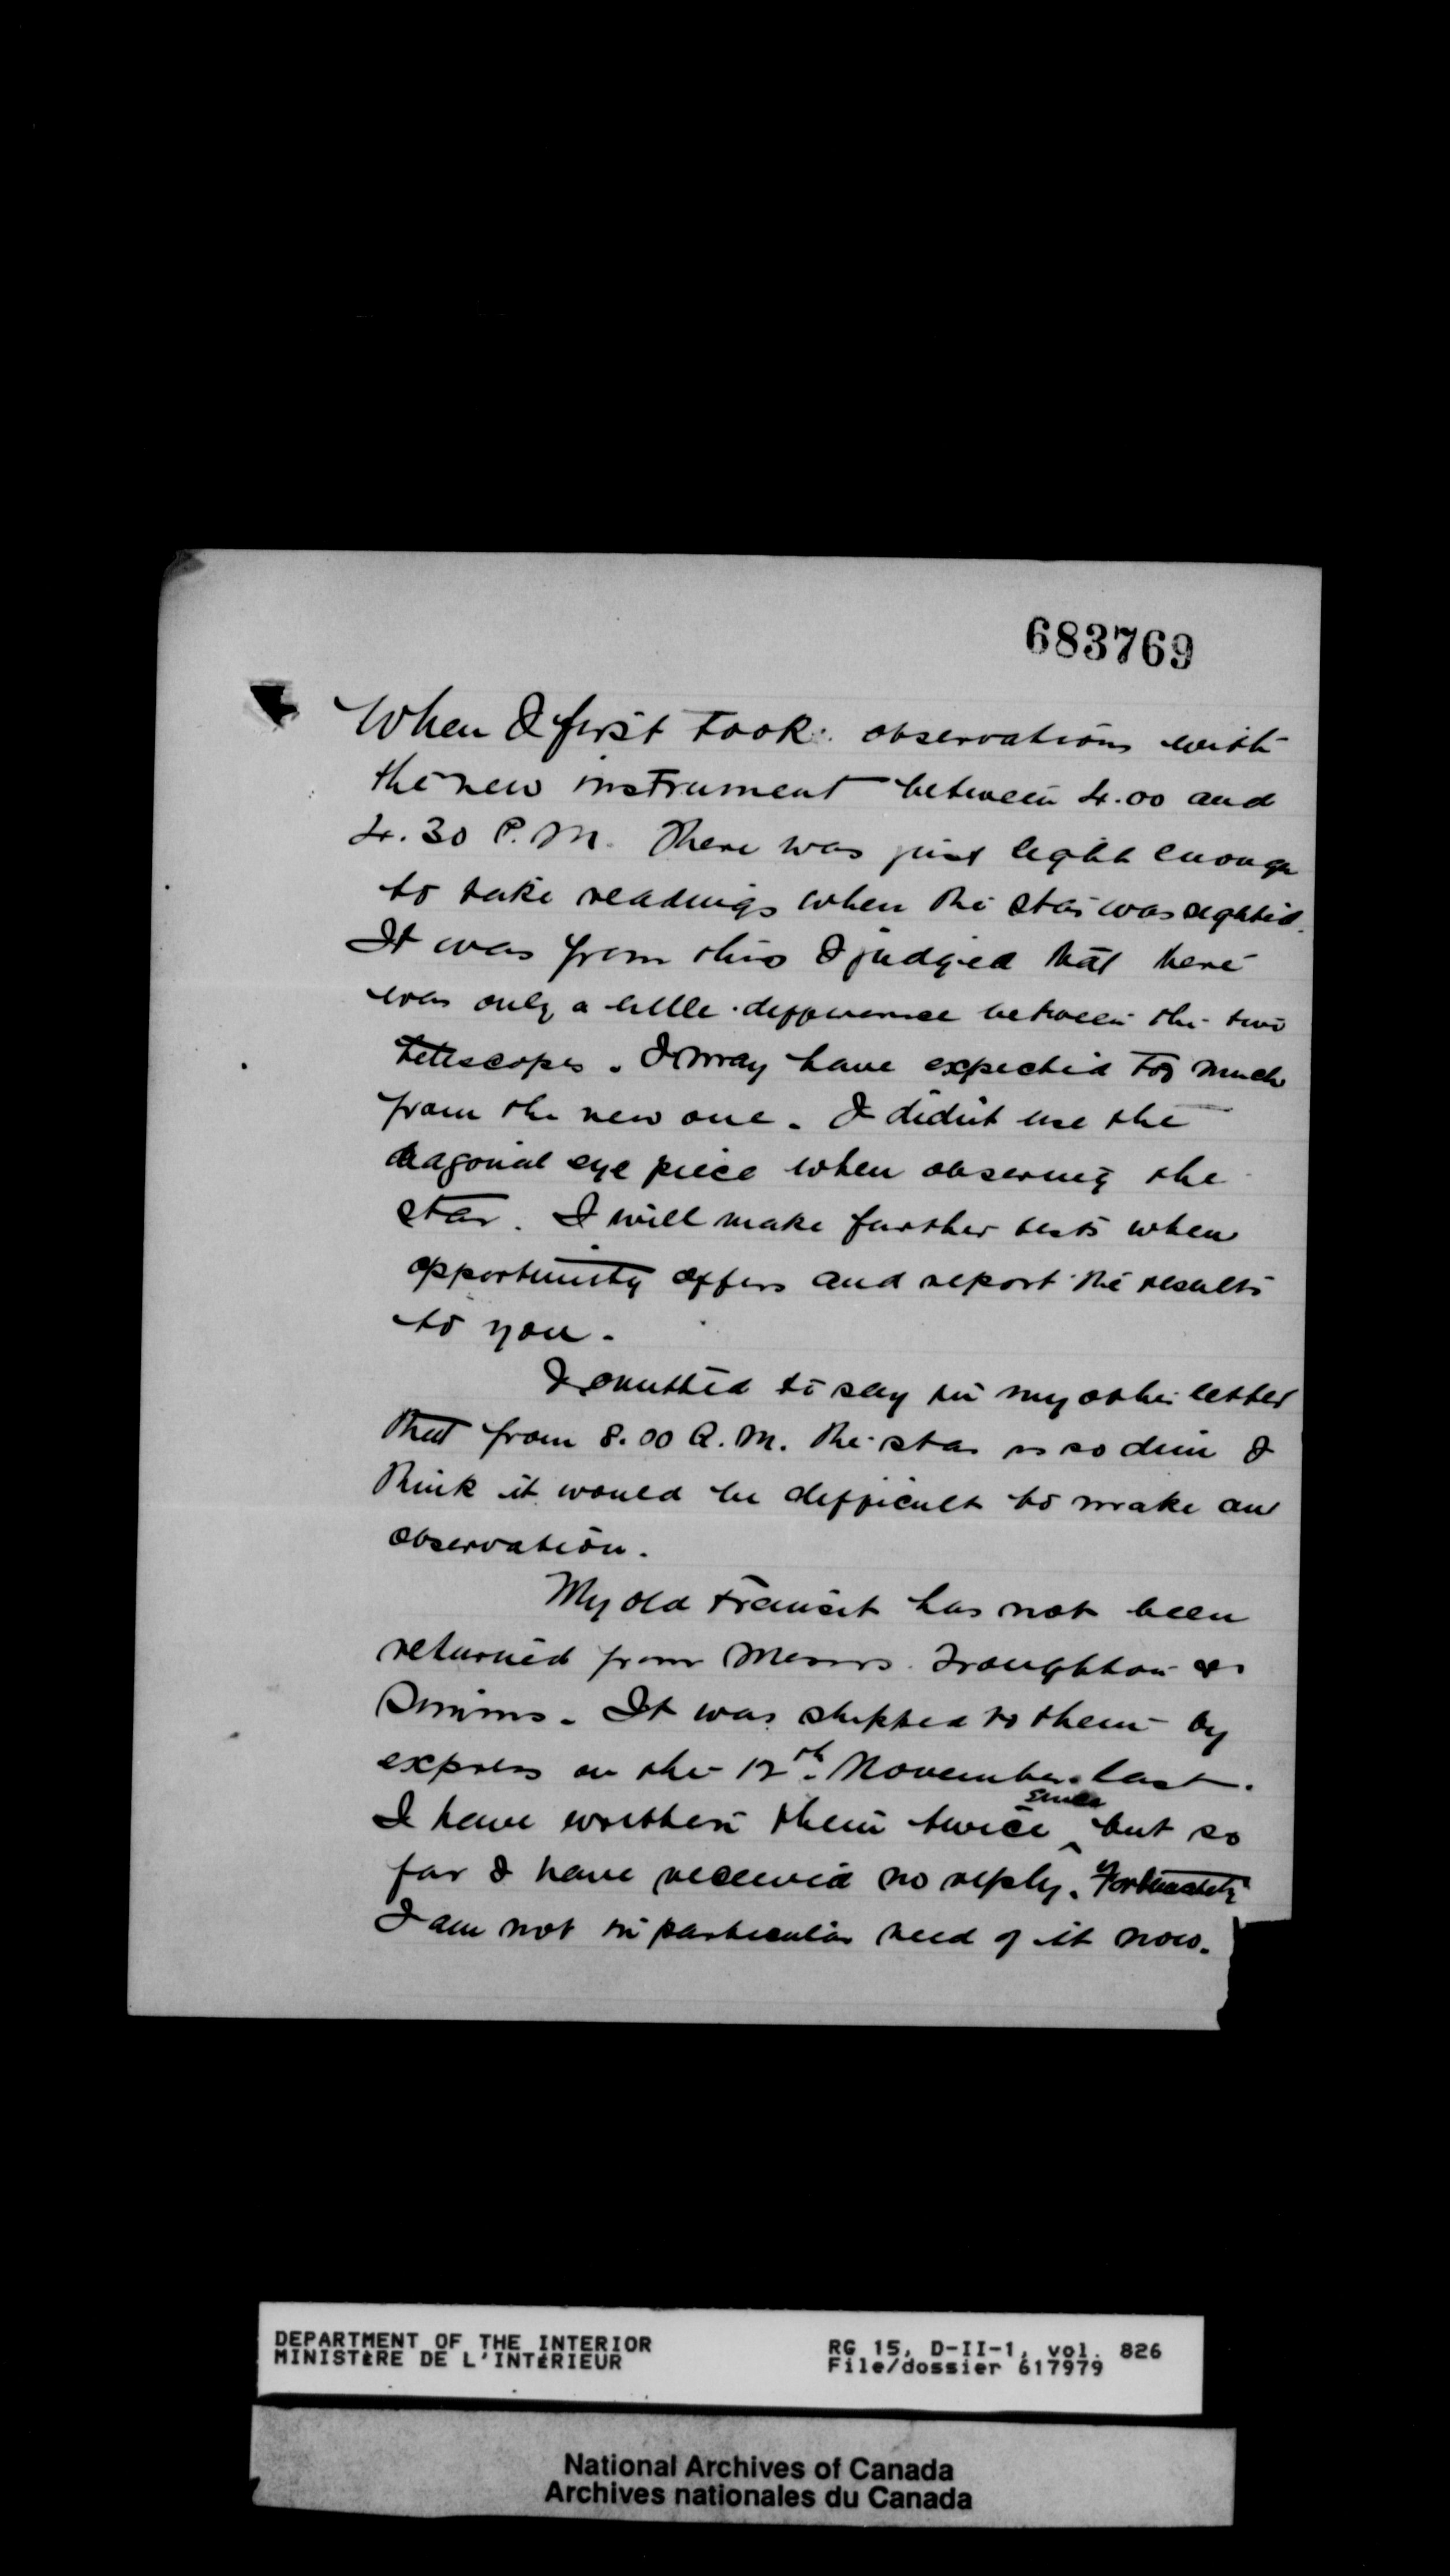 683769
When I first took observations with
the new instrument between 4.00 and
4.30 P.M. There was just light enough
to take readings when the star was sighted.
It was from this I judged that there
was only a little difference between the two
telescopes. I may have expected too much
from the new one. I didn't use the
diagonal eye piece when observing the
star. I will make further tests when
opportunity offers and report the results
to you.
I omitted to say in my other letter
that from 8.00 A.M. the star is so dim I
think it would be difficult to make an
observation.
My old transit has not been
returned from Messrs. Troughton &
Simms. It was shipped to them by
express on the 12th November last.
I have written them twice since but so
far I have received no reply. Fortunately
I am not in particular need of it now.
DEPARTMENT OF THE INTERIOR
MINISTÈRE DE L'INTÉRIEUR
RG 15, D-II-1, vol. 826
File/dossier 617979
National Archives of Canada
Archives nationales du Canada